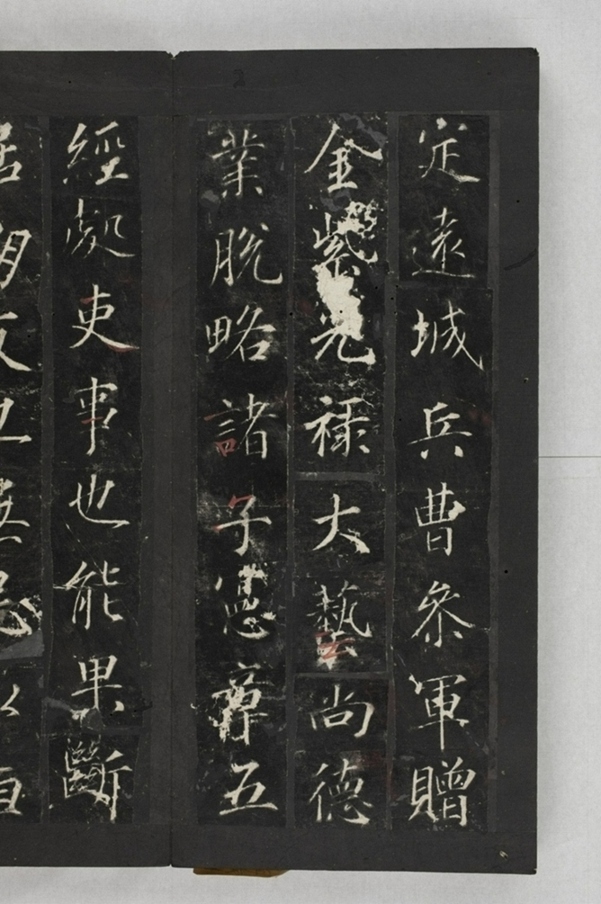 定遠城兵曹叅軍贈
金紫光祿大藝尚德
業脫略諸子憲章五
經處吏事也能果斷